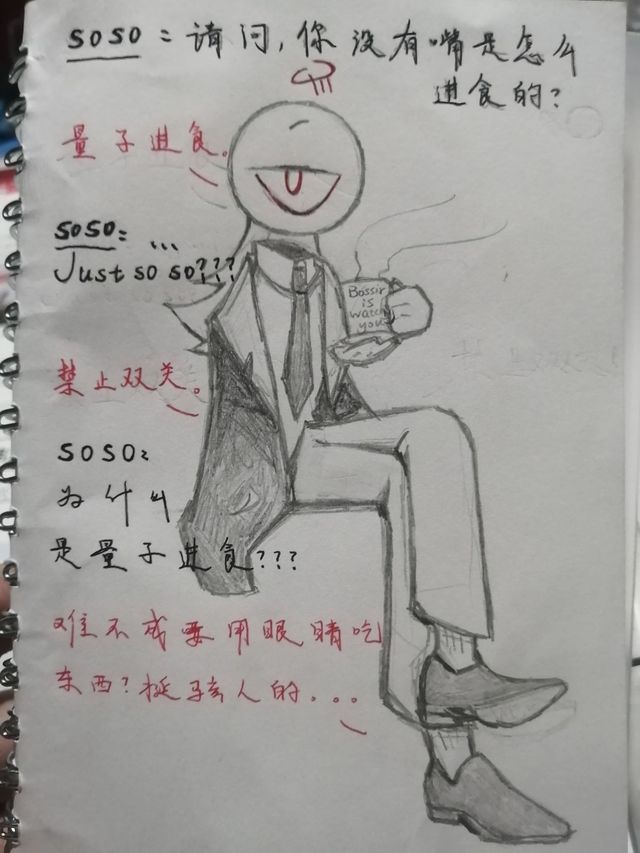 soso：请问，你没有嘴是怎么
进食的？
量子进食。
soso：...
Just so so???
Bossir
is
watch
you
禁止双关。
soso：
为什叫
是量子进食???
难不成要用眼睛吃
东西？挺骇人的...